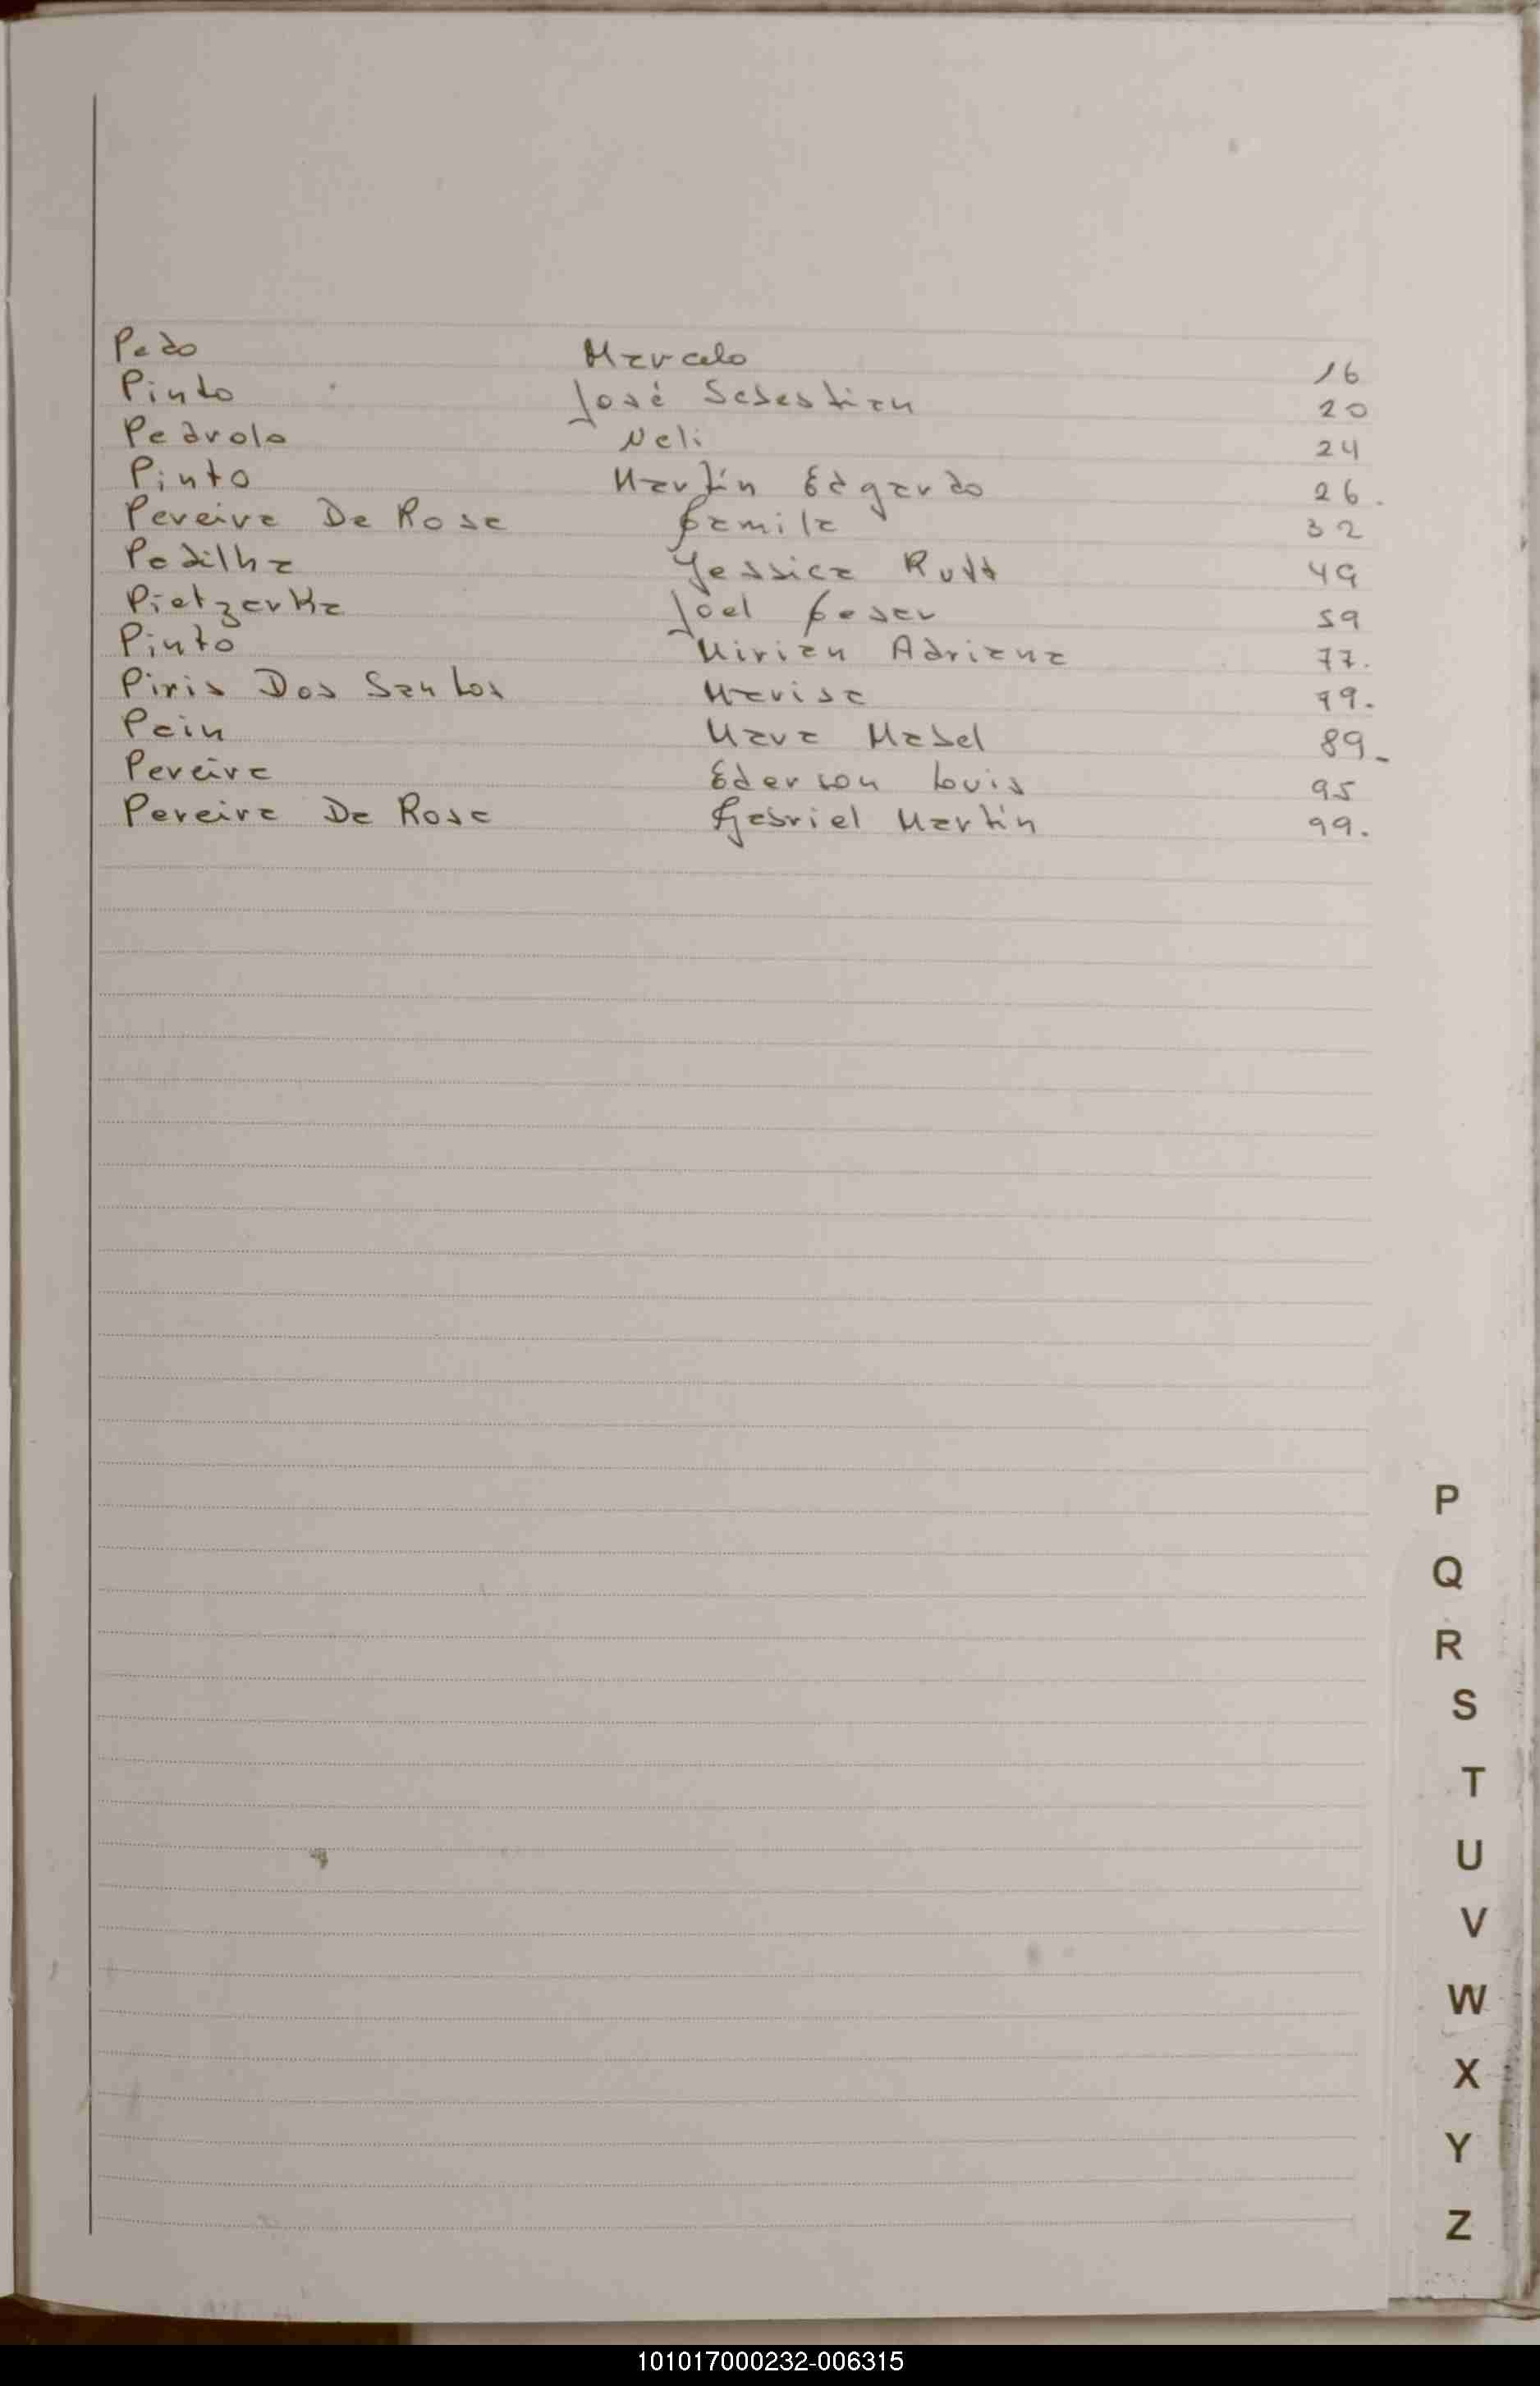 Pedo Marcelo 16
Pinto José Sebastian 20
Pedrolo Neli 24
Pinto Martín Edgardo 26.
Pereira De Rosa Camila 32
Padilha Yessica Rutt 49
Pietzarka Joel Cesar 59
Pinto Mirian Adriana 77.
Piris Dos Santos Marisa 79.
Pein Mara Mabel 89-
Pereira Ederson Luis 95
Pereira De Rosa Gabriel Martín 99.
P
Q
R
S
T
U
V
W
X
Y
Z
101017000232-006315